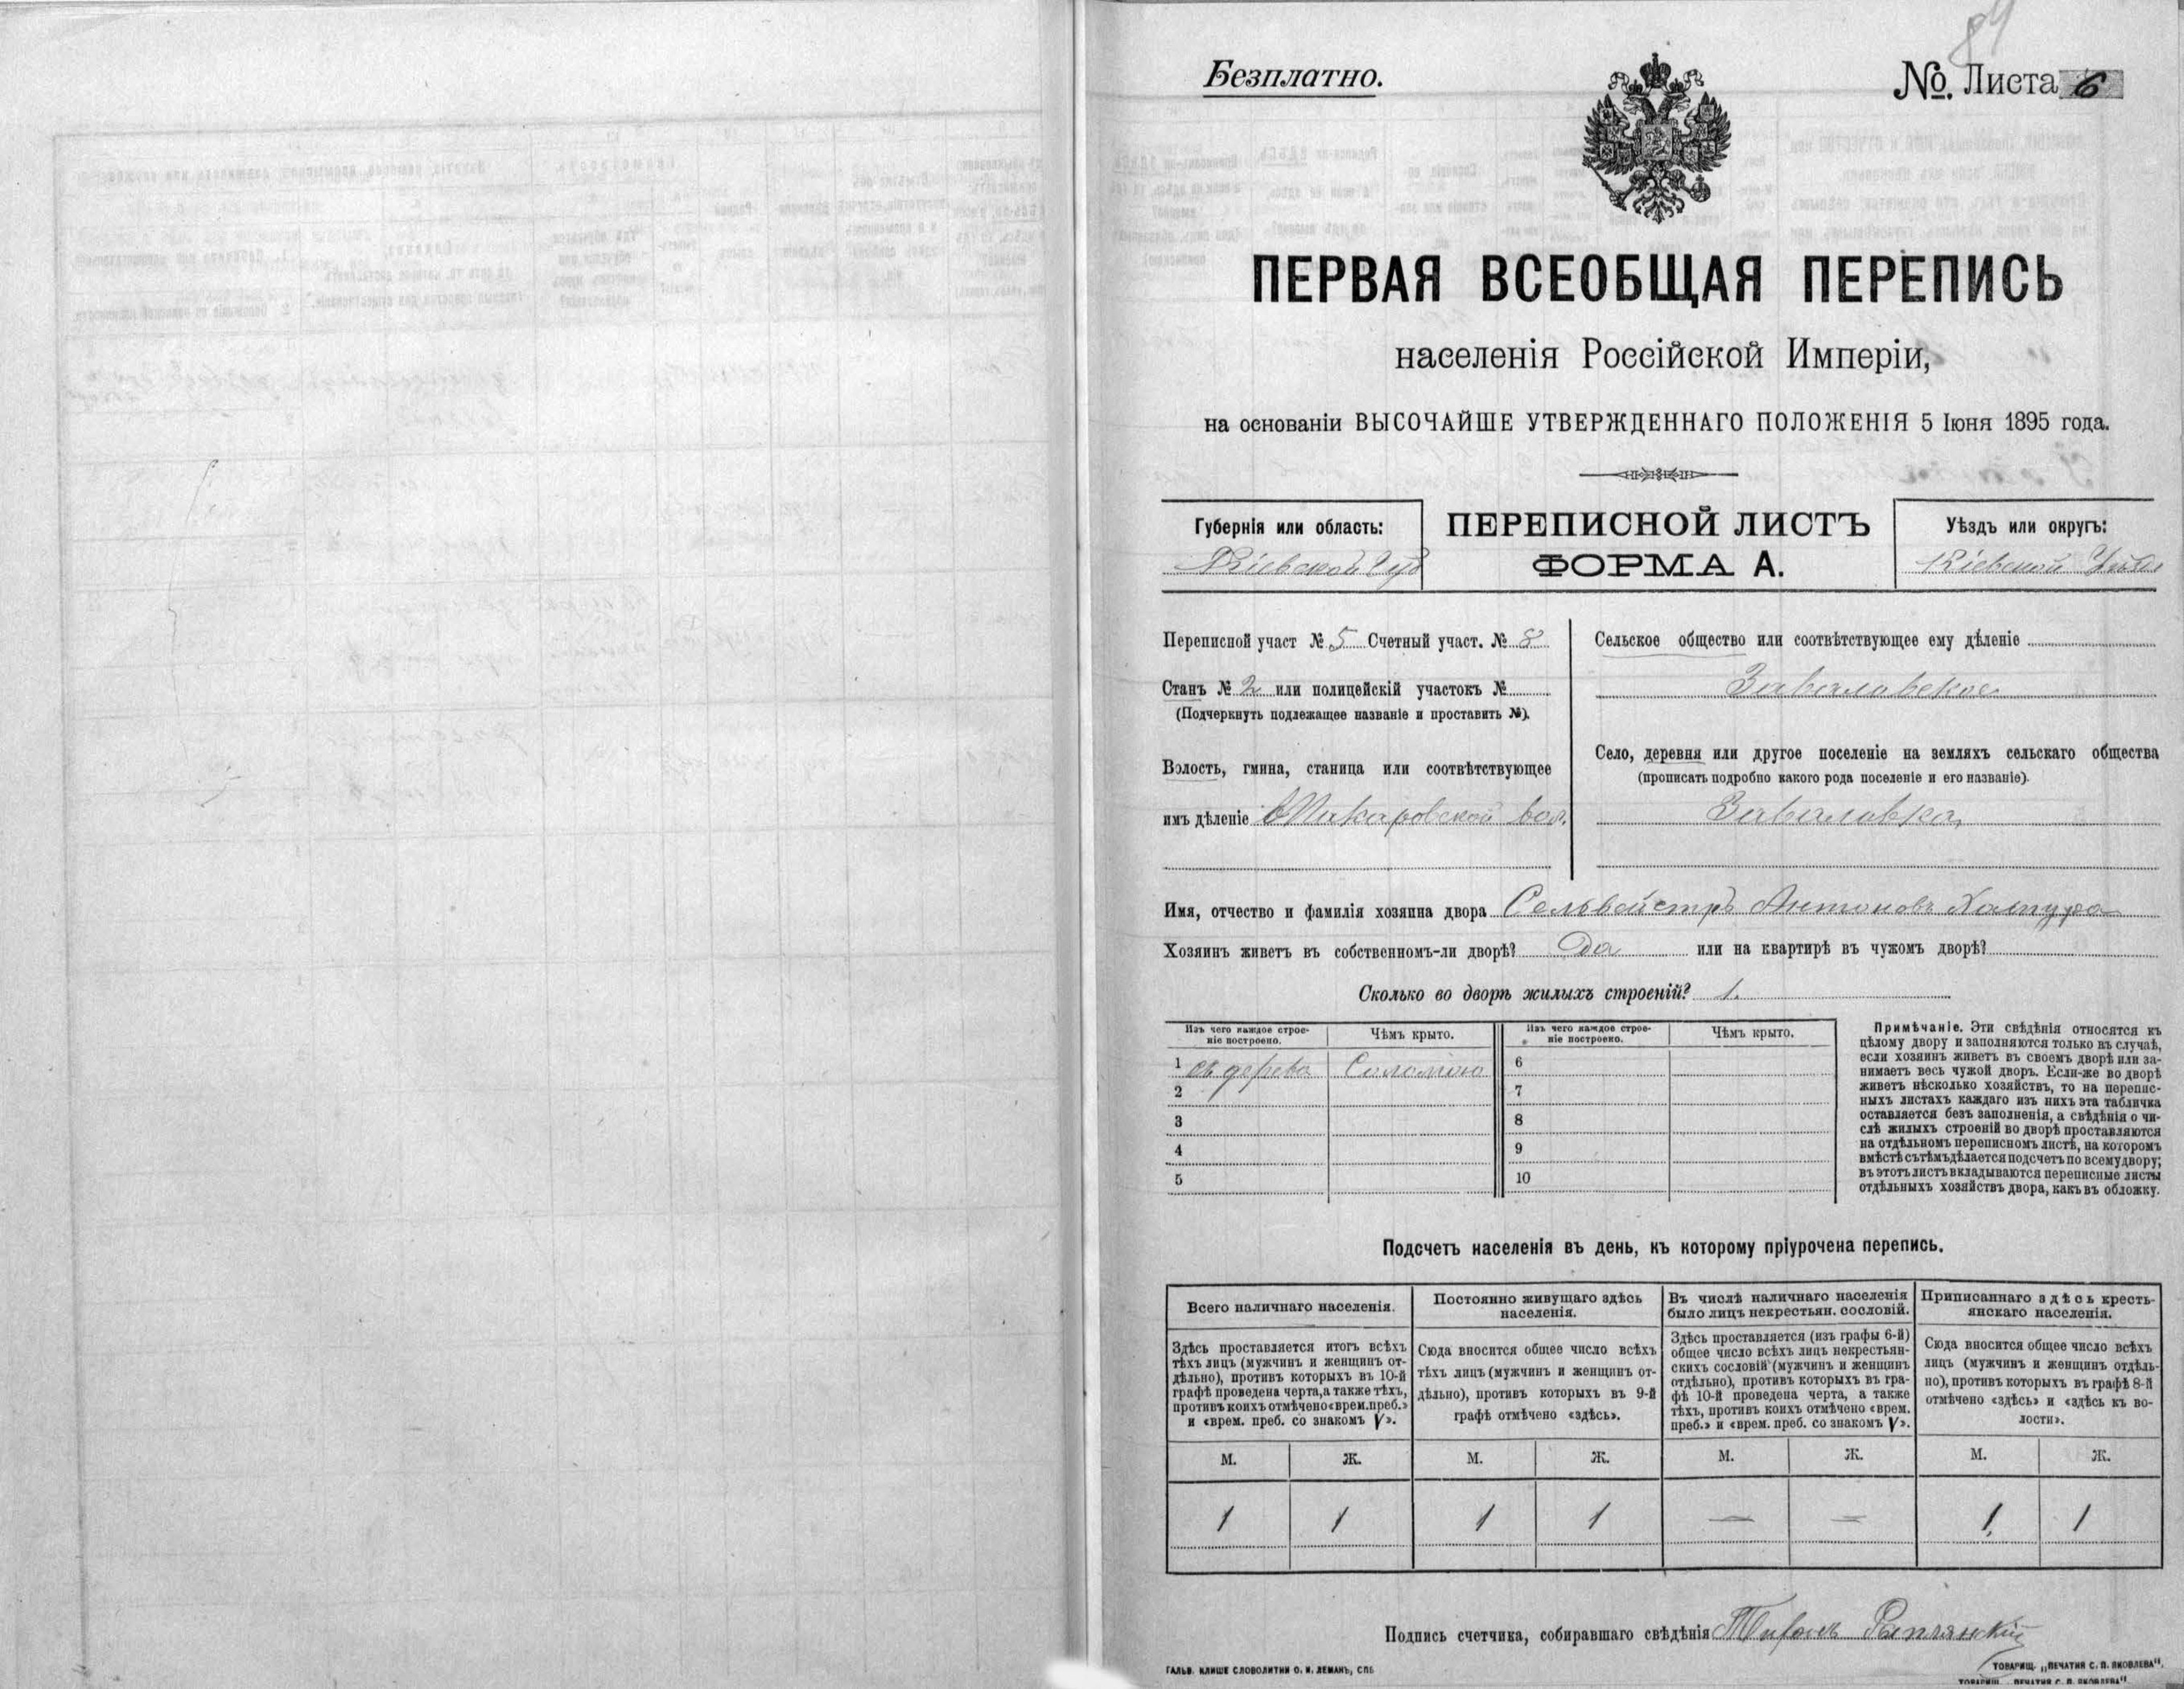 84
Безплатно.
№. Листа 6
ПЕРВАЯ ВСЕОБЩАЯ ПЕРЕПИСЬ
населенія Россійской Имперіи,
на основаніи ВЫСОЧАЙШЕ УТВЕРЖДЕННАГО ПОЛОЖЕНІЯ 5 Іюня 1895 года.
Губернія или область:
Кіевской Губ
ПЕРЕПИСНОЙ ЛИСТЪ
ФОРМА А.
Уѣздъ или округъ:
Кіевской
Переписной участ № 5 Счетный участ. № 8
Станъ № 2 или полицейскій участокъ №
(Подчеркнуть подлежащее названіе и проставить №).
Волость, гмина, станица или соотвѣтствующее
имъ дѣленіе Макаровской вол.
Сельское общество или соотвѣтствующее ему дѣленіе
Заваловское
Село, деревня или другое поселеніе на земляхъ сельскаго общества
(прописать подробно какого рода поселеніе и его названіе).
Заваловка
Имя, отчество и фамилія хозяина двора Сельвейстръ Антоновъ Хамура
Хозяинъ живетъ въ собственномъ-ли дворѣ? Да или на квартирѣ въ чужомъ дворѣ?
Сколько во дворѣ жилыхъ строеній? 1.
Изъ чего каждое строе-
ніе построено.
Чѣмъ крыто.
Изъ чего каждое строе-
ніе построено.
Чѣмъ крыто.
1 съ дерева Соломою
2
3
4
5
6
7
8
9
10
Примѣчаніе. Эти свѣдѣнія относятся къ
цѣлому двору и заполняются только въ случаѣ,
если хозяинъ живетъ въ своемъ дворѣ или за-
нимаетъ весь чужой дворъ. Если-же во дворѣ
живетъ нѣсколько хозяйствъ, то на перепис-
ныхъ листахъ каждаго изъ нихъ эта табличка
оставляется безъ заполненія, а свѣдѣнія о чи-
слѣ жилыхъ строеній во дворѣ проставляются
на отдѣльномъ переписномъ листѣ, на которомъ
вмѣстѣ съ тѣмъ дѣлается подсчетъ по всему двору;
въ этотъ листъ вкладываются переписные листы
отдѣльныхъ хозяйствъ двора, какъ въ обложку.
Подсчетъ населенія въ день, къ которому пріурочена перепись.
Всего наличнаго населенія.
Здѣсь проставляется итогъ всѣхъ
тѣхъ лицъ (мужчинъ и женщинъ от-
дѣльно), противъ которыхъ въ 10-й
графѣ проведена черта, а также тѣхъ,
противъ коихъ отмѣчено «врем. преб.»
и «врем. преб. со знакомъ V».
Постоянно живущаго здѣсь
населенія.
Сюда вносится общее число всѣхъ
тѣхъ лицъ (мужчинъ и женщинъ от-
дѣльно), противъ которыхъ въ 9-й
графѣ отмѣчено «здѣсь».
Въ числѣ наличнаго населенія
было лицъ некрестьян. сословій.
Здѣсь проставляется (изъ графы 6-й)
общее число всѣхъ лицъ некрестьян-
скихъ сословій (мужчинъ и женщинъ
отдѣльно), противъ которыхъ въ гра-
фѣ 10-й проведена черта, а также
тѣхъ, противъ коихъ отмѣчено «врем.
преб.» и «врем. преб. со знакомъ V».
Приписаннаго здѣсь кресть-
янскаго населенія.
Сюда вносится общее число всѣхъ
лицъ (мужчинъ и женщинъ отдѣль-
но), противъ которыхъ въ графѣ 8-й
отмѣчено «здѣсь» и «здѣсь къ во-
лости».
М. Ж. М. Ж. М. Ж. М. Ж.
1 1 1 1 — — 1 1
Подпись счетчика, собиравшаго свѣдѣнія
ГАЛЬВ. КЛИШЕ СЛОВОЛИТНИ О. И. ЛЕМАНЪ, СПБ
ТОВАРИЩ. „ПЕЧАТНЯ С. П. ЯКОВЛЕВА".
ТОВАРИЩ. „ПЕЧАТНЯ С. П. ЯКОВЛЕВА"